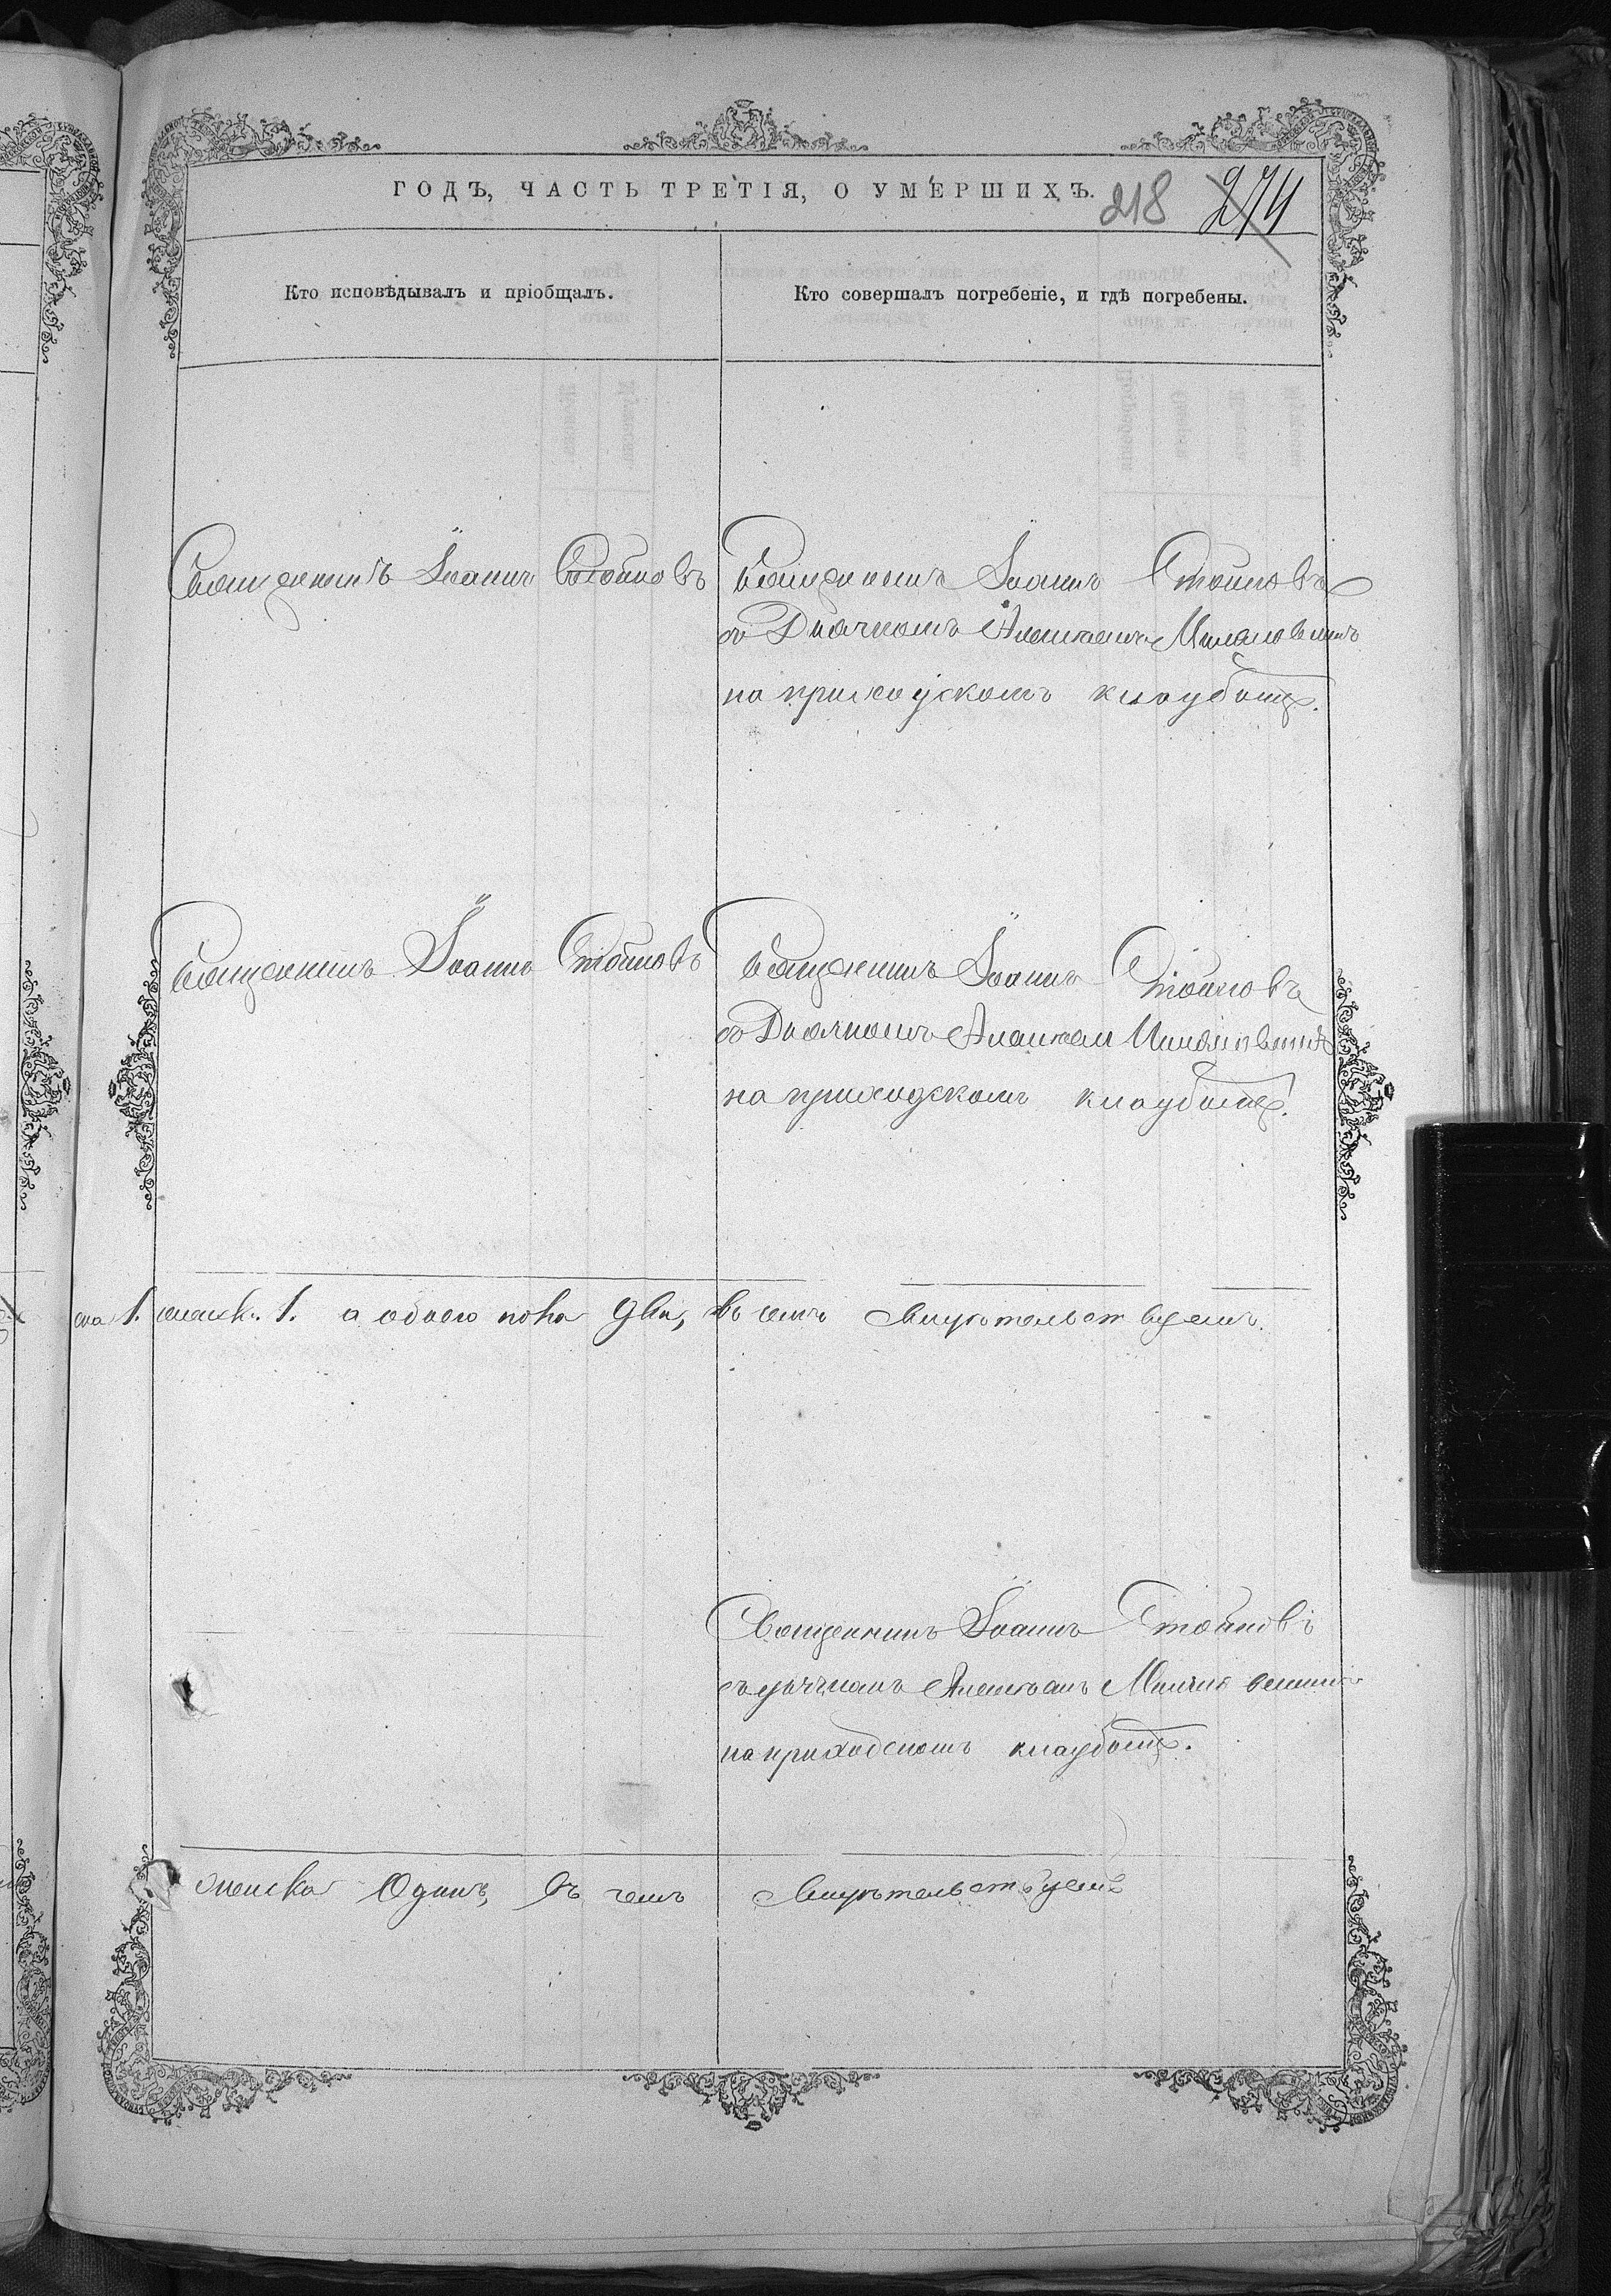 ГОДЪ, ЧАСТЬ ТРЕТІЯ, О УМЕРШИХЪ.
218 274
Кто исповѣдывалъ и пріобщалъ.
Кто совершалъ погребеніе, и гдѣ погребены.
Священникъ Іоаннъ Стойковъ
Священникъ Іоаннъ Стойковъ
съ Дьячкомъ
на приходскомъ кладбищѣ.
Священникъ Іоаннъ Стойковъ
Священникъ Іоаннъ Стойковъ
съ Дьячкомъ
на приходскомъ кладбищѣ.
1. женск. 1. а обоего пола два, въ чемъ свидѣтельствуемъ.
Священникъ Іоаннъ Стойковъ
съ дьячкомъ
на приходскомъ кладбищѣ.
женска Одинъ, въ чемъ свидѣтельствуемъ